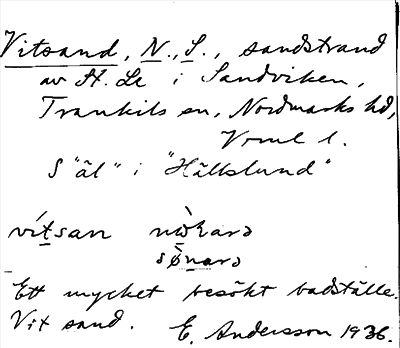 Vitsand, N., S., sandstrand
av St. Le i Sandviken,
Trankils sn, Nordmarks hd,
Vrml l.
S "äl" i "Hällslund"
vítsan nò̤rarə
sø̀narə
Ett mycket besökt badställe.
Vit sand. E. Andersson 1936.